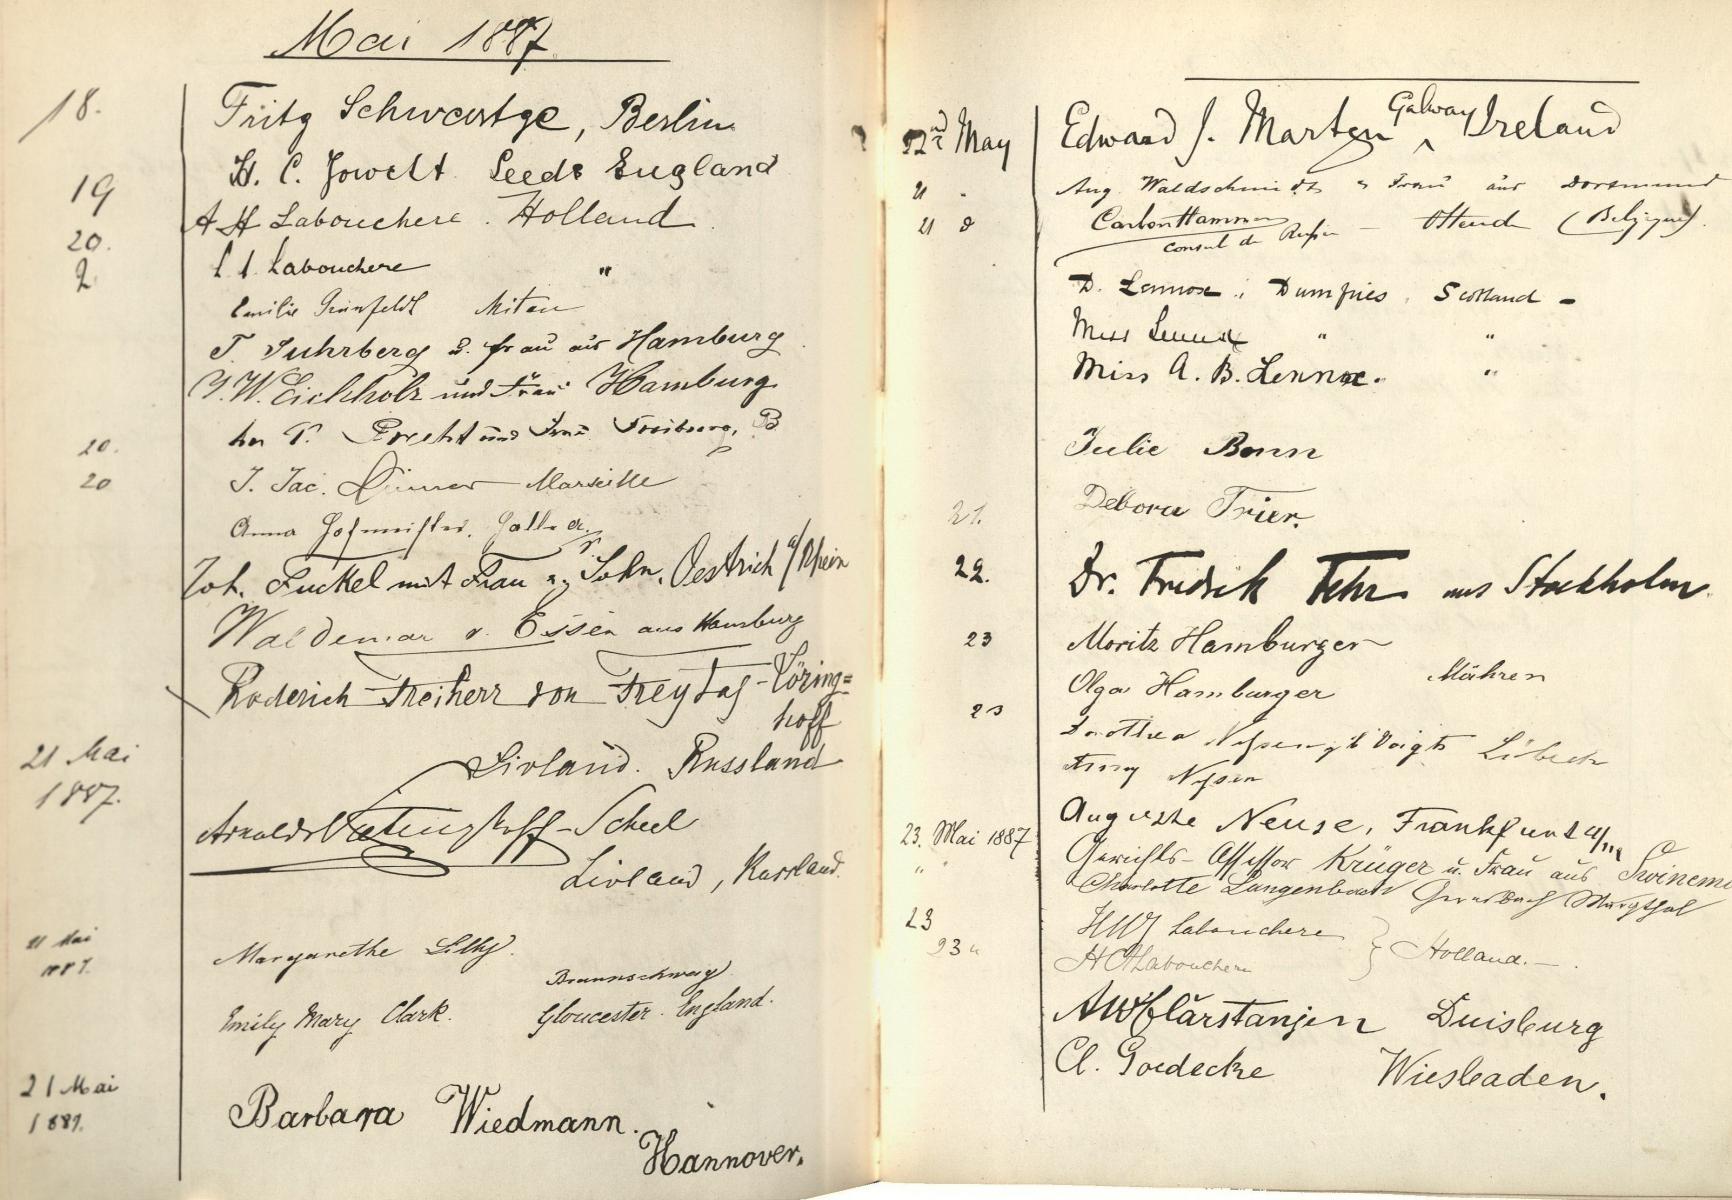 Mai 1887
18. Fritz Schwartze, Berlin
H. C. Jowett Leeds England
19 A H Labouchere. Holland
20.
2 Labouchere "
Emilie Grünfeldt Mitau
T. Suhrberg u. Frau aus Hamburg
J. W. Eichholz und Frau Hamburg
und Frau Freiburg, B
20.
20 J. Jac. Marseille
Anna Hofmeister,
Joh. Fuckel mit Frau u. Sohn, Oestrich a/Rhein
Waldemar v. Essen aus Hamburg
Roderich Freiherr von Freytag-Löring=
hoff
21 Mai Livland. Russland
1887.
Arnold Vietinghoff-Scheel
Livland, Russland.
21 Mai
1887. Margarethe Lilly.
Braunschweig
Emily Mary Clark. Gloucester. England.
21 Mai
1887. Barbara Wiedmann.
Hannover.
22nd May Edward J. Martyn Galway Ireland
21 " Aug. Waldschmidt u Frau aus Dortmund
21 Hamman Ostende (Belgique)
Consul de
D. Lennox, Dumfries, Scotland -
Miss Lennox " "
Miss A. B. Lennox. "
Julie Bonn
21. Debora Trier.
22. Dr. Fredrik Fehr aus Stockholm.
23 Moritz Hamburger
Mähren
Olga Hamburger
23 Dorothea Voigt Lübeck
Auguste Neuse, Frankfurt a/M
23. Mai 1887
" Gerichts-Assessor Krüger u. Frau aus
Charlotte Langenbach Murgthal
23 Labouchere
23 " Labouchere } Holland. -
Carstanjen Duisburg
Cl. Goedecke Wiesbaden.